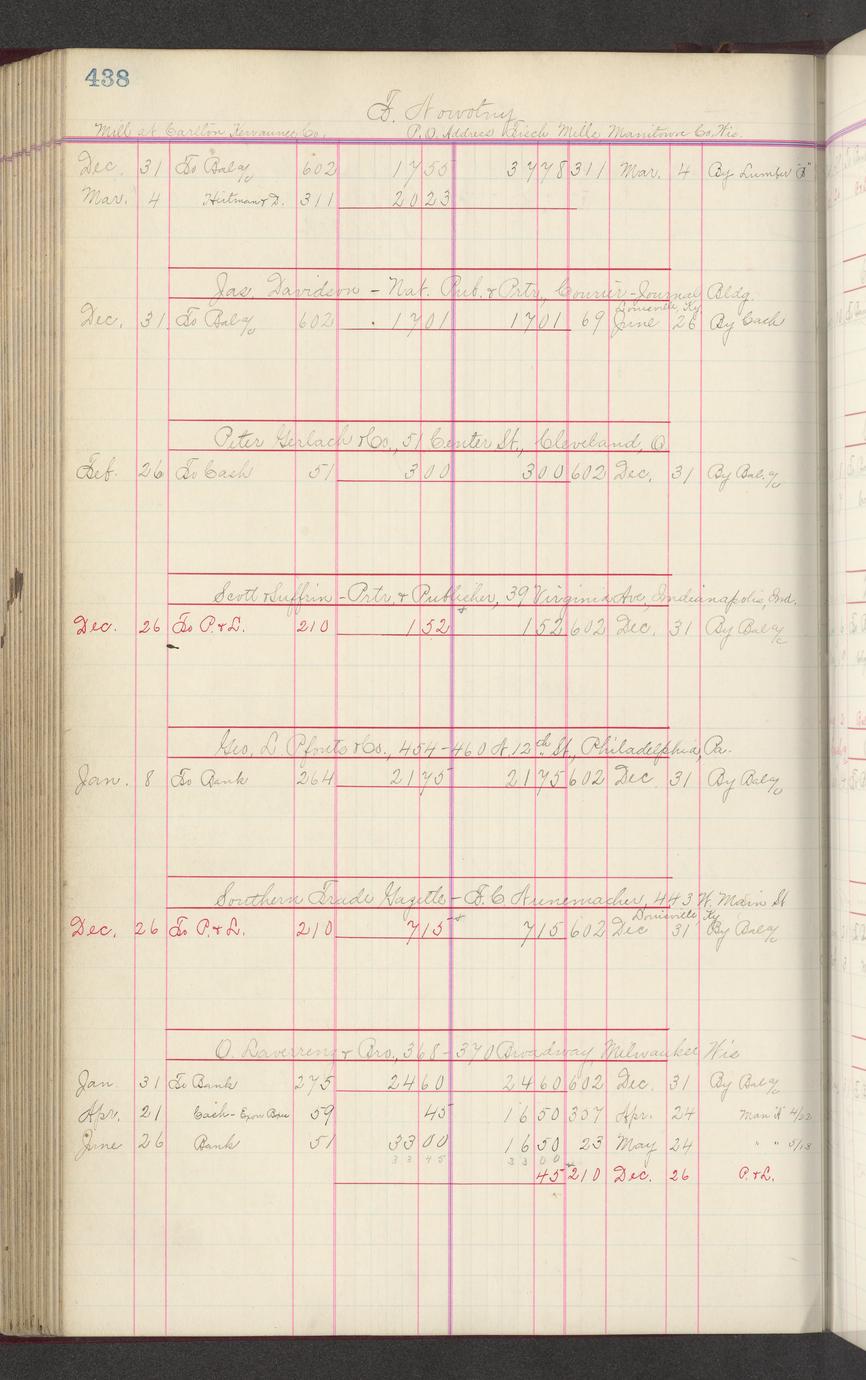 438
F. Nowotny
Mill at Carlton Kewaunee Co. P.O. Address Tisch Mills Manitowoc Co. Wis.
Dec. 31 To Bal a/c 602 1755 3778 311 Mar. 4 By Lumber "B"
Mar. 4 311 2023
Jas. Davidson - Nat. Pub. & Prtr., Courier-Journal Bldg.
Louisville, Ky.
Dec. 31 To Bal a/c 602 1701 1701 69 June 26 By Cash
Peter Gerlach & Co., 51 Center St., Cleveland, O
Feb. 26 To Cash 51 300 300 602 Dec. 31 By Bal. a/c
Scott & - Prtr. & Publisher, 39 Virginia Ave, Indianapolis, Ind.
Dec. 26 To P. & L. 210 152 152 602 Dec. 31 By Bal a/c
Geo. L. Pfouts & Co., 454-460 N. 12th St., Philadelphia, Pa.
Jan. 8 To Bank 264 2175 2175 602 Dec 31 By Bal a/c
Southern Trade Gazette - F.C. Nunemacher, 443 W. Main St
Louisville Ky
Dec. 26 To P. & L. 210 715 715 602 Dec 31 By Bal a/c
O. & Bro., 368-370 Broadway, Milwaukee Wis
Jan 31 To Bank 275 2460 2460 602 Dec. 31 By Bal a/c
Apr. 21 Cash - 59 45 1650 357 Apr. 24
June 26 Bank 51 3300 1650 23 May 24 " "
3345 3300
45 210 Dec. 26 P. & L.